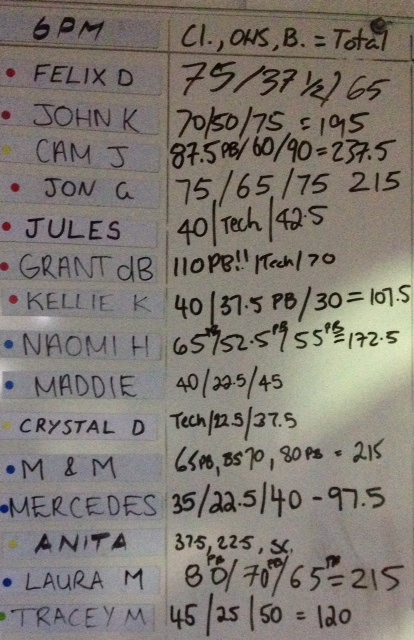 6PM Cl., OHS, B. = Total
FELIX D 75/37 1/2/65
JOHN K 70/50/75 = 195
CAM J 87.5 PB/60/90=237.5
JON G 75/65/75 215
JULES 40/Tech/42.5
GRANT dB 110 PB!! /Tech/70
KELLIE K 40/37.5 PB/30=107.5
NAOMI H 65PB/52.5PB/55PB=172.5
MADDIE 40/22.5/45
CRYSTAL D Tech/22.5/37.5
M & M 65PB, 70, 80PB = 215
MERCEDES 35/22.5/40 - 97.5
ANITA 37.5, 22.5, SC.
LAURA M 80PB/70PB/65PB=215
TRACEY M 45/25/50 = 120